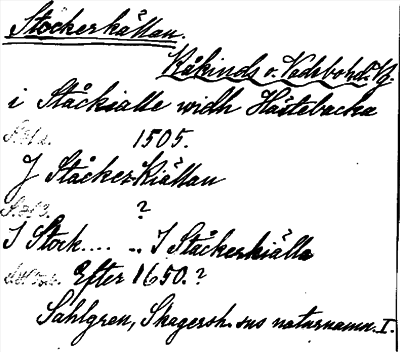 Stockerkällan.
Kåkinds o. Vadsbohd. Vg.
i Ståckialle widh Hästebacka
1505.
J Ståcker Kiällan
?
I Stock.... .. I Ståckerkiälla
Efter 1650.?
Sahlgren, Skagersh. sns naturnamn. I.